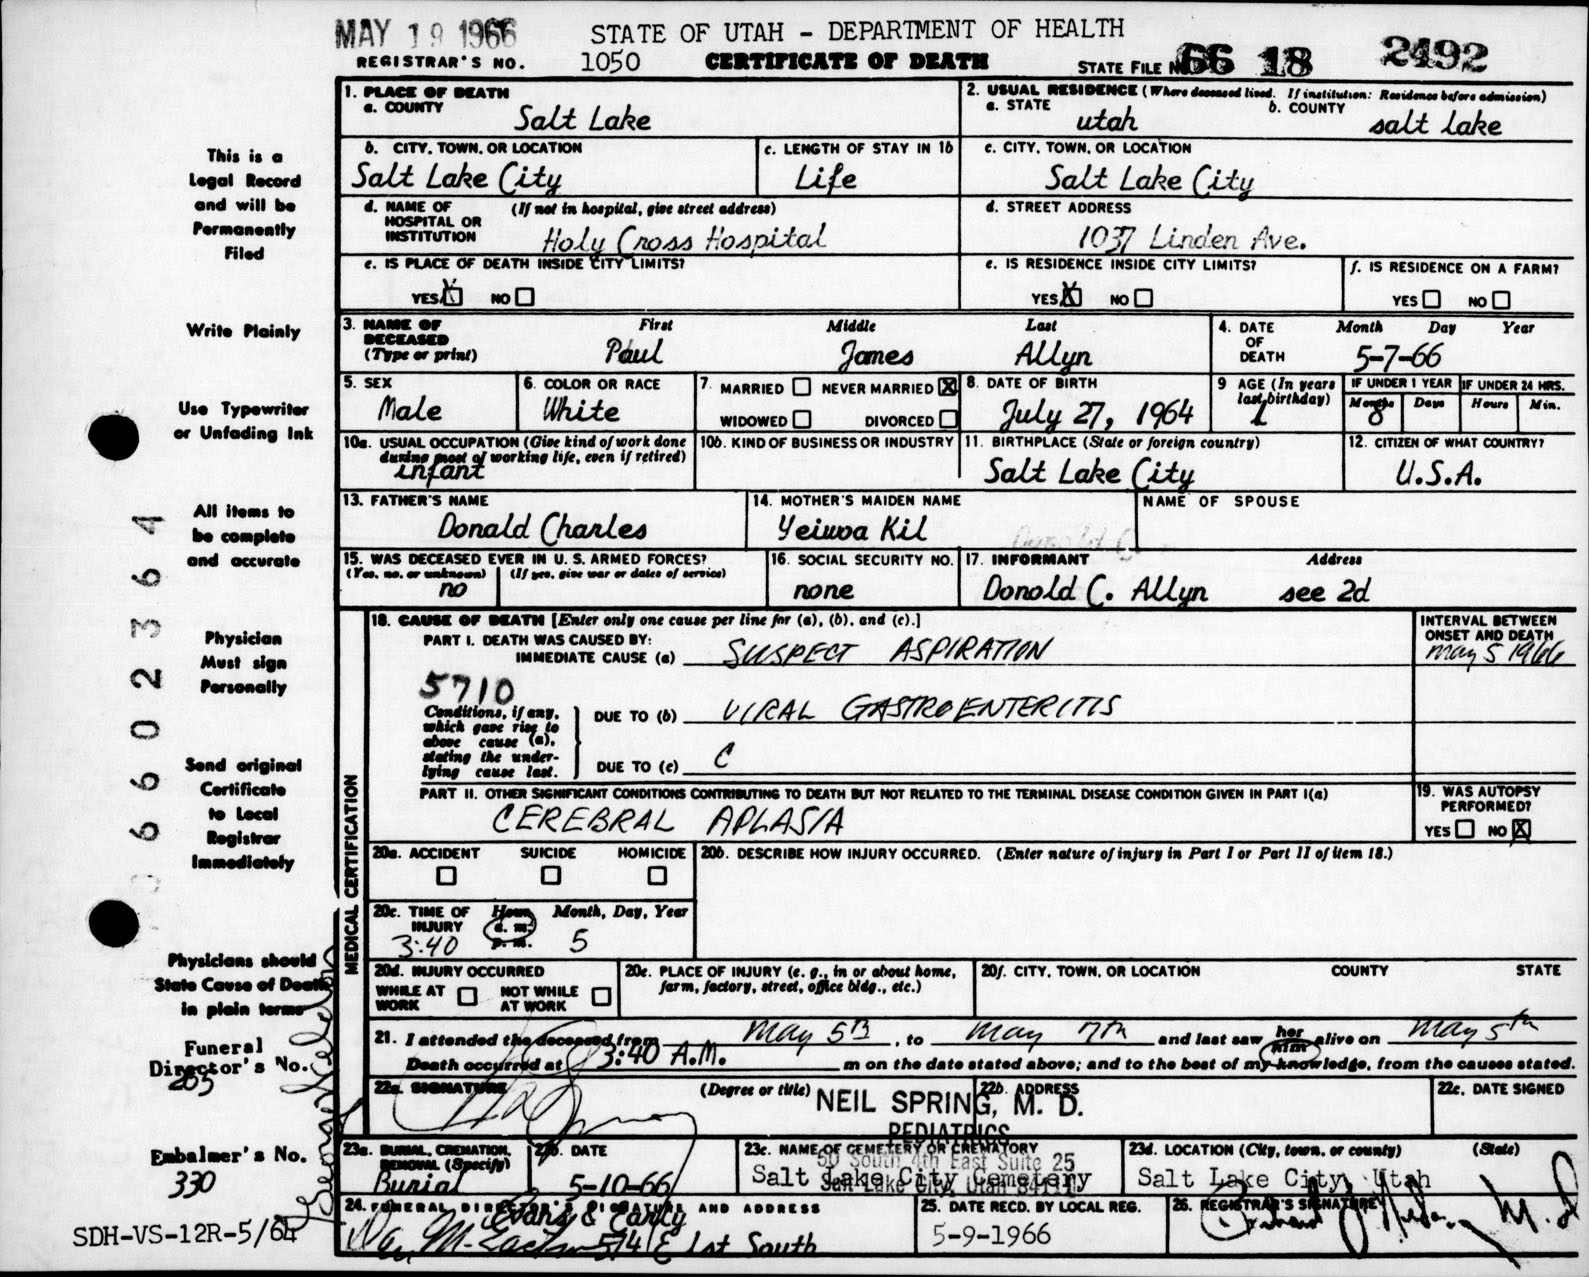 MAY 19 1966 STATE OF UTAH - DEPARTMENT OF HEALTH
REGISTRAR'S NO. 1050 CERTIFICATE OF DEATH STATE FILE NO. 66 18 2492
1. PLACE OF DEATH
a. COUNTY Salt Lake
2. USUAL RESIDENCE (Where deceased lived. If institution: Residence before admission)
a. STATE utah b. COUNTY salt lake
b. CITY, TOWN, OR LOCATION Salt Lake City
c. LENGTH OF STAY IN 1b Life
c. CITY, TOWN, OR LOCATION Salt Lake City
d. NAME OF HOSPITAL OR INSTITUTION (If not in hospital, give street address) Holy Cross Hospital
d. STREET ADDRESS 1037 Linden Ave.
e. IS PLACE OF DEATH INSIDE CITY LIMITS?
YES X NO
e. IS RESIDENCE INSIDE CITY LIMITS?
YES X NO
f. IS RESIDENCE ON A FARM?
YES NO
3. NAME OF DECEASED (Type or print) First Middle Last
Paul James Allyn
4. DATE OF DEATH Month Day Year
5-7-66
5. SEX Male
6. COLOR OR RACE White
7. MARRIED NEVER MARRIED X
WIDOWED DIVORCED
8. DATE OF BIRTH July 27, 1964
9 AGE (In years last birthday) 1
IF UNDER 1 YEAR Months 8 Days
IF UNDER 24 HRS. Hours Min.
10a. USUAL OCCUPATION (Give kind of work done during most of working life, even if retired) infant
10b. KIND OF BUSINESS OR INDUSTRY
11. BIRTHPLACE (State or foreign country) Salt Lake City
12. CITIZEN OF WHAT COUNTRY? U.S.A.
13. FATHER'S NAME Donald Charles
14. MOTHER'S MAIDEN NAME Yeiwoa Kil
NAME OF SPOUSE
15. WAS DECEASED EVER IN U. S. ARMED FORCES?
(Yes, no, or unknown) (If yes, give war or dates of service)
no
16. SOCIAL SECURITY NO. none
17. INFORMANT Address
Donold C. Allyn see 2d
18. CAUSE OF DEATH [Enter only one cause per line for (a), (b), and (c).]
PART I. DEATH WAS CAUSED BY:
IMMEDIATE CAUSE (a) SUSPECT ASPIRATION
INTERVAL BETWEEN ONSET AND DEATH
may 5 1966
5710
Conditions, if any, which gave rise to above cause (a), stating the underlying cause last.
DUE TO (b) VIRAL GASTROENTERITIS
DUE TO (c) C
PART II. OTHER SIGNIFICANT CONDITIONS CONTRIBUTING TO DEATH BUT NOT RELATED TO THE TERMINAL DISEASE CONDITION GIVEN IN PART I(a)
CEREBRAL APLASIA
19. WAS AUTOPSY PERFORMED?
YES NO X
20a. ACCIDENT SUICIDE HOMICIDE
20b. DESCRIBE HOW INJURY OCCURRED. (Enter nature of injury in Part I or Part II of item 18.)
20c. TIME OF INJURY Hour a. m. p. m. Month, Day, Year
3:40 5
20d. INJURY OCCURRED
WHILE AT WORK NOT WHILE AT WORK
20e. PLACE OF INJURY (e. g., in or about home, farm, factory, street, office bldg., etc.)
20f. CITY, TOWN, OR LOCATION COUNTY STATE
21. I attended the deceased from May 5th, to May 7th and last saw her him alive on May 5th
Death occurred at 3:40 A.M. m on the date stated above; and to the best of my knowledge, from the causes stated.
22a. SIGNATURE (Degree or title)
22b. ADDRESS
22c. DATE SIGNED
NEIL SPRING, M. D.
PEDIATRICS
50 South 4th East Suite 25
Salt Lake City, Utah 84111
23a. BURIAL, CREMATION, REMOVAL (Specify) Burial
23b. DATE 5-10-66
23c. NAME OF CEMETERY OR CREMATORY Salt Lake City Cemetery
23d. LOCATION (City, town, or county) (State)
Salt Lake City, Utah
24. FUNERAL DIRECTOR'S SIGNATURE AND ADDRESS
Evans & Early
574 E 1st South
25. DATE RECD. BY LOCAL REG. 5-9-1966
26. REGISTRAR'S SIGNATURE
M.D
MEDICAL CERTIFICATION
This is a
Legal Record
and will be
Permanently
Filed
Write Plainly
Use Typewriter
or Unfading Ink
All items to
be complete
and accurate
Physician
Must sign
Personally
Send original
Certificate
to Local
Registrar
Immediately
Physicians should
State Cause of Death
in plain terms
Funeral
Director's No.
265
Embalmer's No.
330
SDH-VS-12R-5/64
6602364